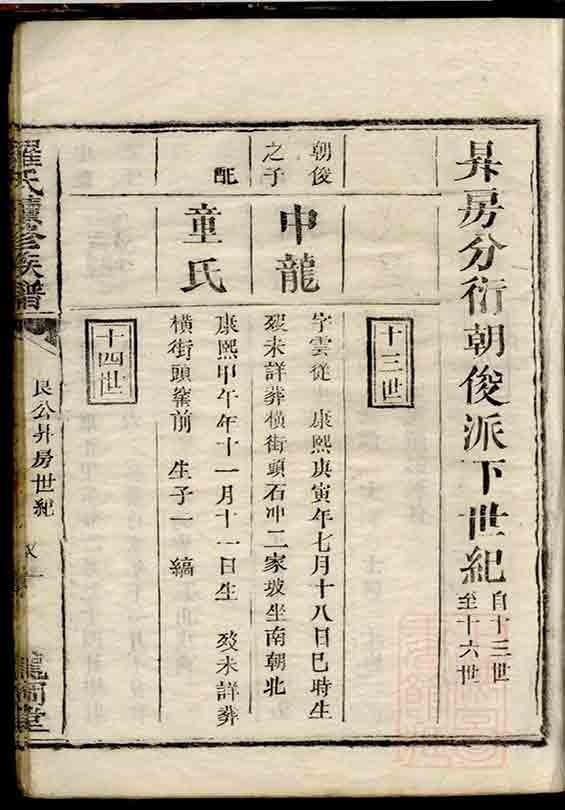 昇房分衍朝俊派下世紀自十三世至十六世
十三世
朝俊之子
申龍
字雲從　康熙庚寅年七月十八日巳時生
歿未詳葬橫街頭石冲二家坡坐南朝北
配
童氏
康熙甲午年十一月十一日生　歿未詳葬
橫街頭窰前　生子一　縞
十四世
羅氏續修族譜
艮公昇房世紀